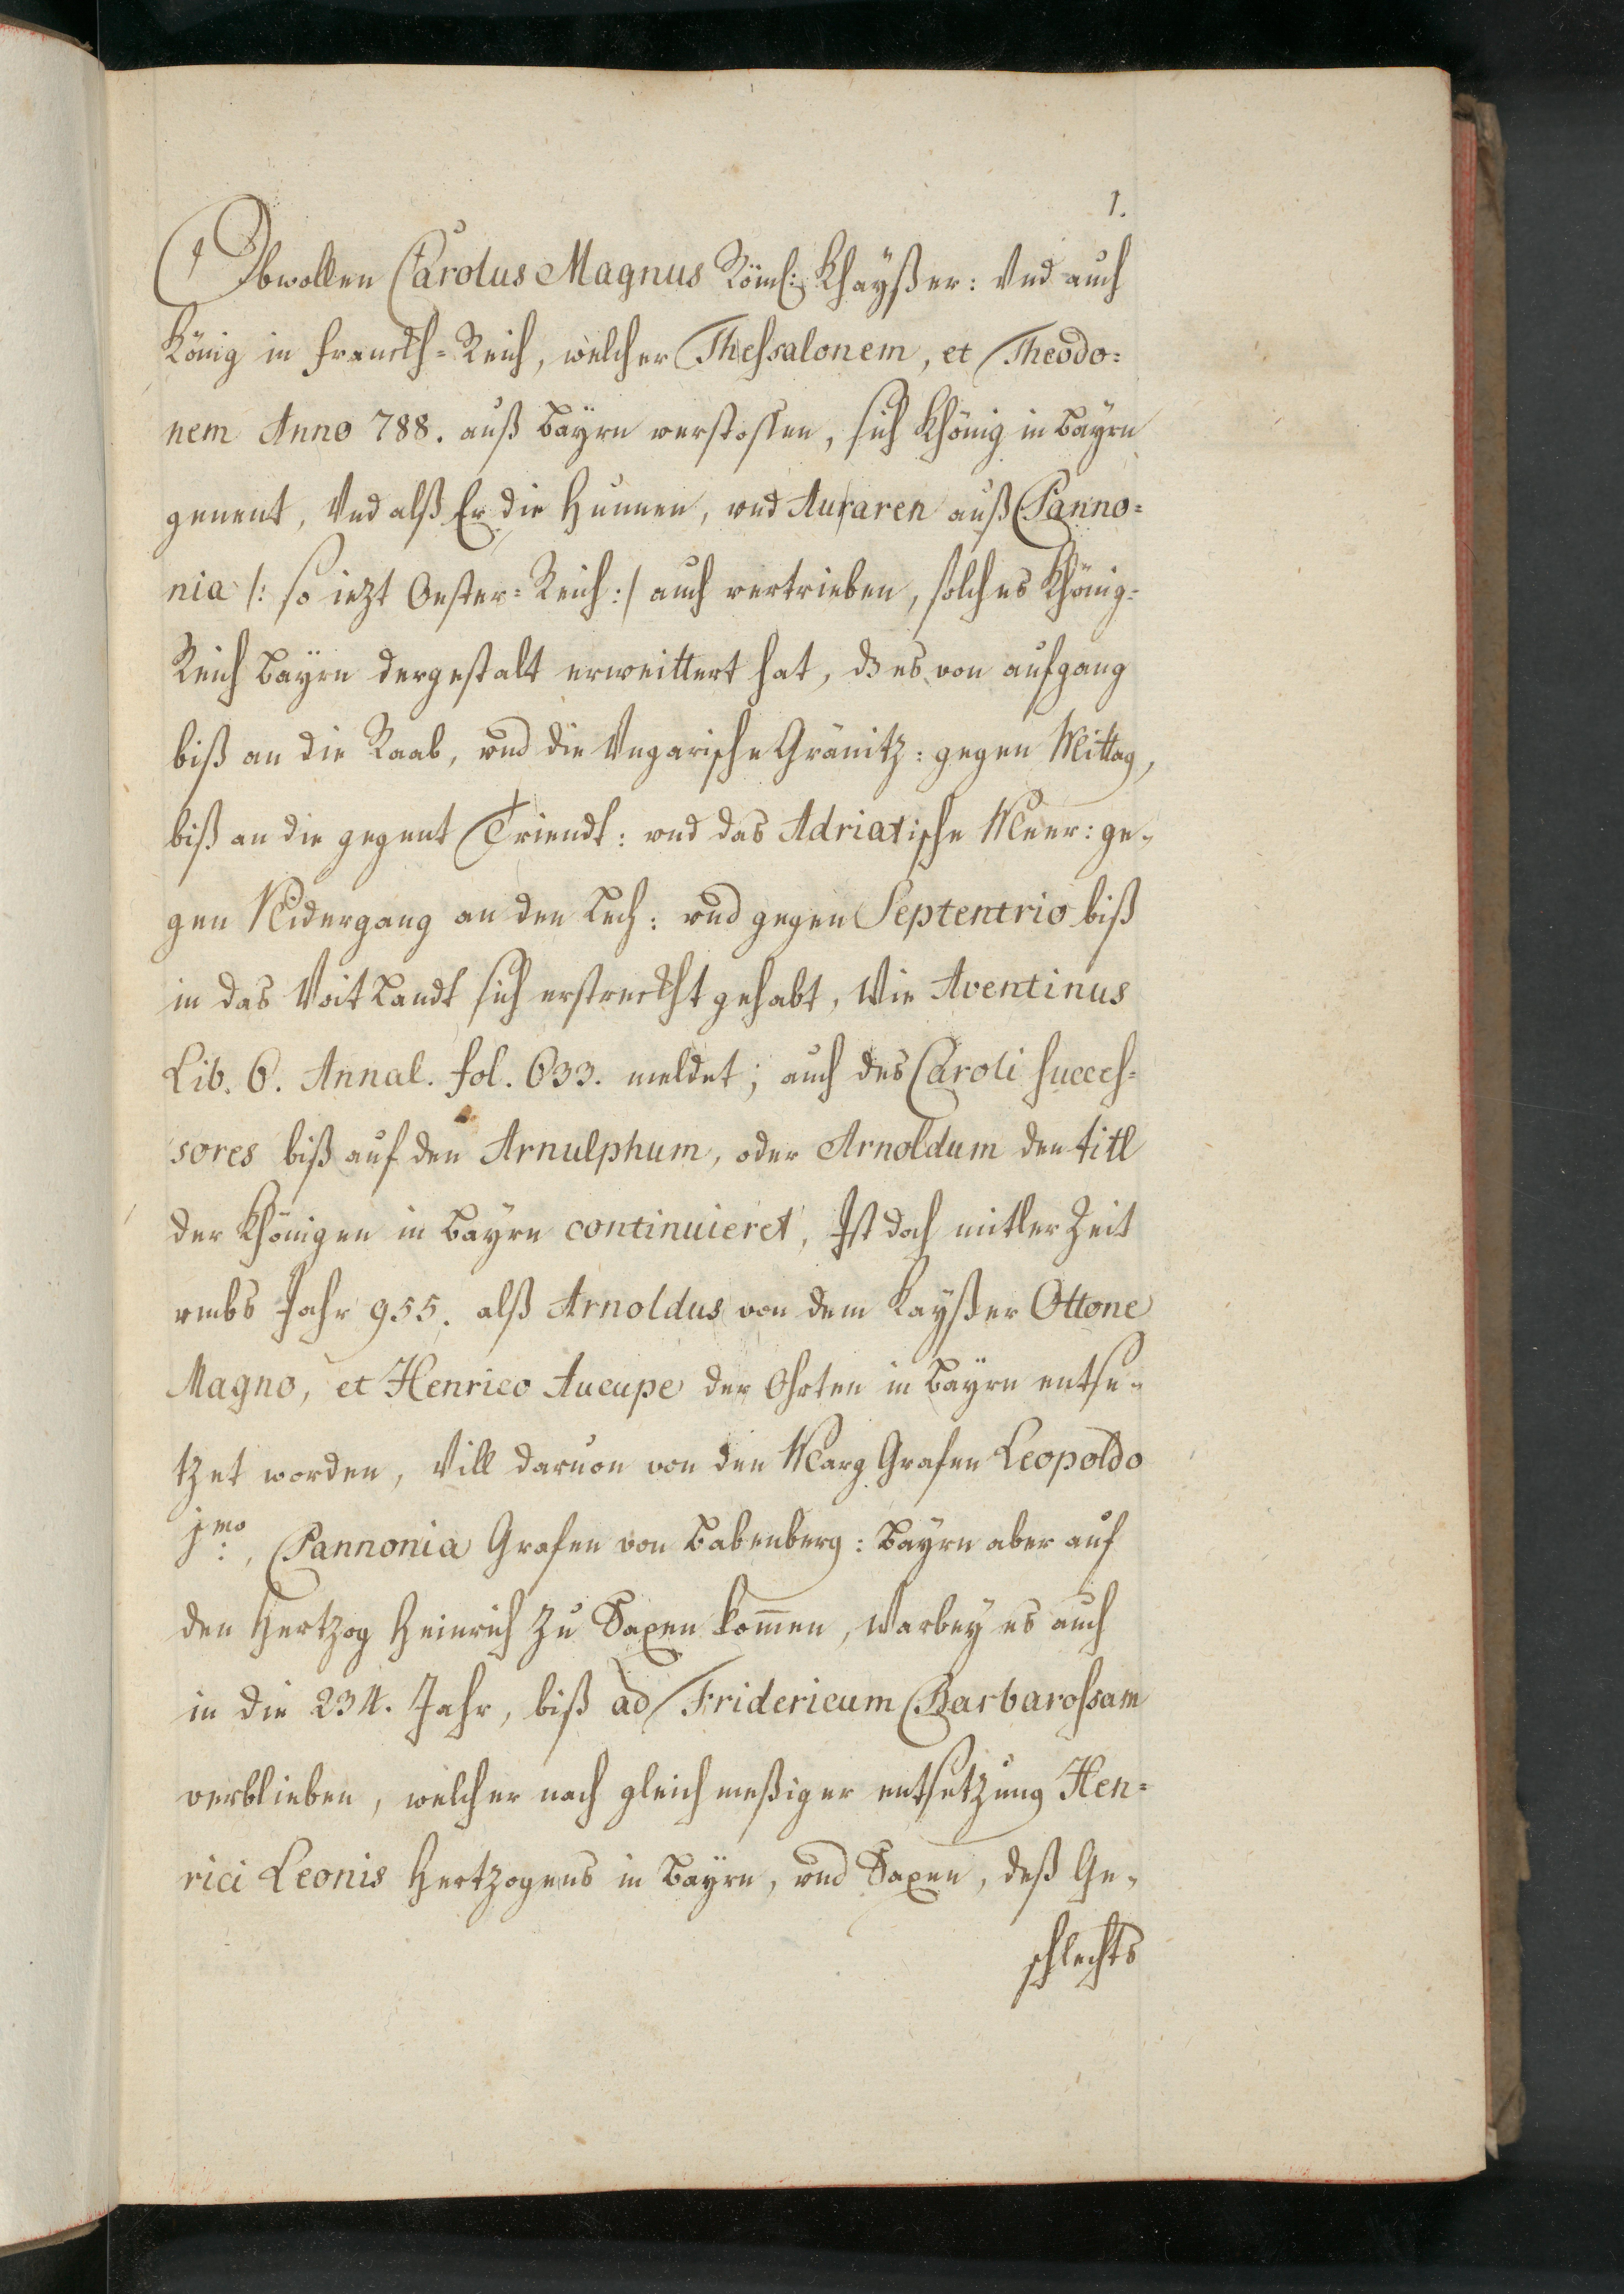 1.
Obwollen Carolus Magnus Röml: Khaÿßer: Vnd auch
König in Franckh=Reich, welcher Thessalonem, et Theodo=
nem Anno 788. auß Baÿrn verstossen, sich Khönig in Baÿrn
genent, Vnd alß Er die Hunnen, vnd Auraren auß Panno=
nia /: so iezt Oester=Reich :/ auch vertrieben, solches Khönig=
Reich Baÿrn dergestalt erweittert hat, dz es von aufgang
biß an die Raab, vnd die Vngarische Gränitz: gegen Mittag,
biß an die gegent Triendt: vnd das Adriatische Meer: ge=
gen Nidergang an den Lech: vnd gegen Septentrio biß
in das Voit Landt sich erstreckht gehabt, Wie Aventinus
Lib. 6. Annal. fol. 633. meldet; auch des Caroli succes=
sores biß auf den Arnulphum, oder Arnoldum den titl
der Khönigen in Baÿrn continuieret, Ist doch mitler Zeit
vmbs Jahr 955. alß Arnoldus von dem Kaÿßer Ottone
Magno, et Henrico Aucupe der Ohrten in Baÿrn entse=
tzet worden, Vill daruon von den Marg Grafen Leopoldo
jmo:, Pannonia Grafen von Babenberg: Baÿrn aber auf
den Hertzog Heinrich zu Saxen kom̄en, Warbeÿ es auch
in die 234. Jahr, biß ad Fridericum Barbarossam
verblieben, welcher nach gleich meßiger entsetzung Hen=
rici Leonis Hertzogens in Baÿrn, vnd Saxen, deß Ge=
schlechts